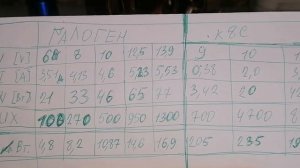 ГАЛОГЕН К8С
[V] 8 10 12,5 13,9 9 10
[A] 4,13 4,6 5,23 5,53 0,38 2,0
[Вт] 21 33 46 65 77 3,42 20
UX 100 270 500 950 1300 700 4700 8
/Вт 4,8 8,2 10,87 14,6 16,9 205 235